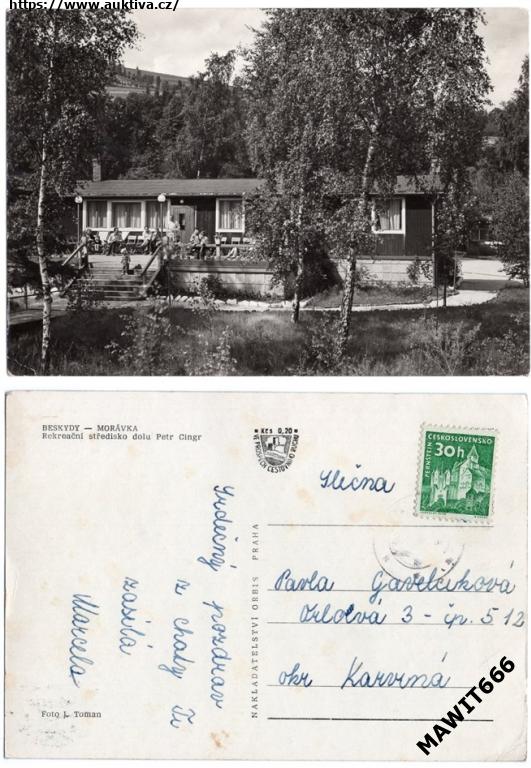 https://www.auktiva.cz/
BESKYDY — MORÁVKA
Rekreační středisko dolu Petr Cingr
Kčs 0,20
VE PROSPĚCH CESTOVNÍHO RUCHU
ČESKOSLOVENSKO
30h
PERNŠTEJN
Srdečný pozdrav
z chaty Ti
zasílá
Marcela
NAKLADATELSTVÍ ORBIS PRAHA
Slečna
Pavla Gavelčíková
Orlová 3 - čp. 512
okr Karviná
Foto J. Toman
MAWIT666